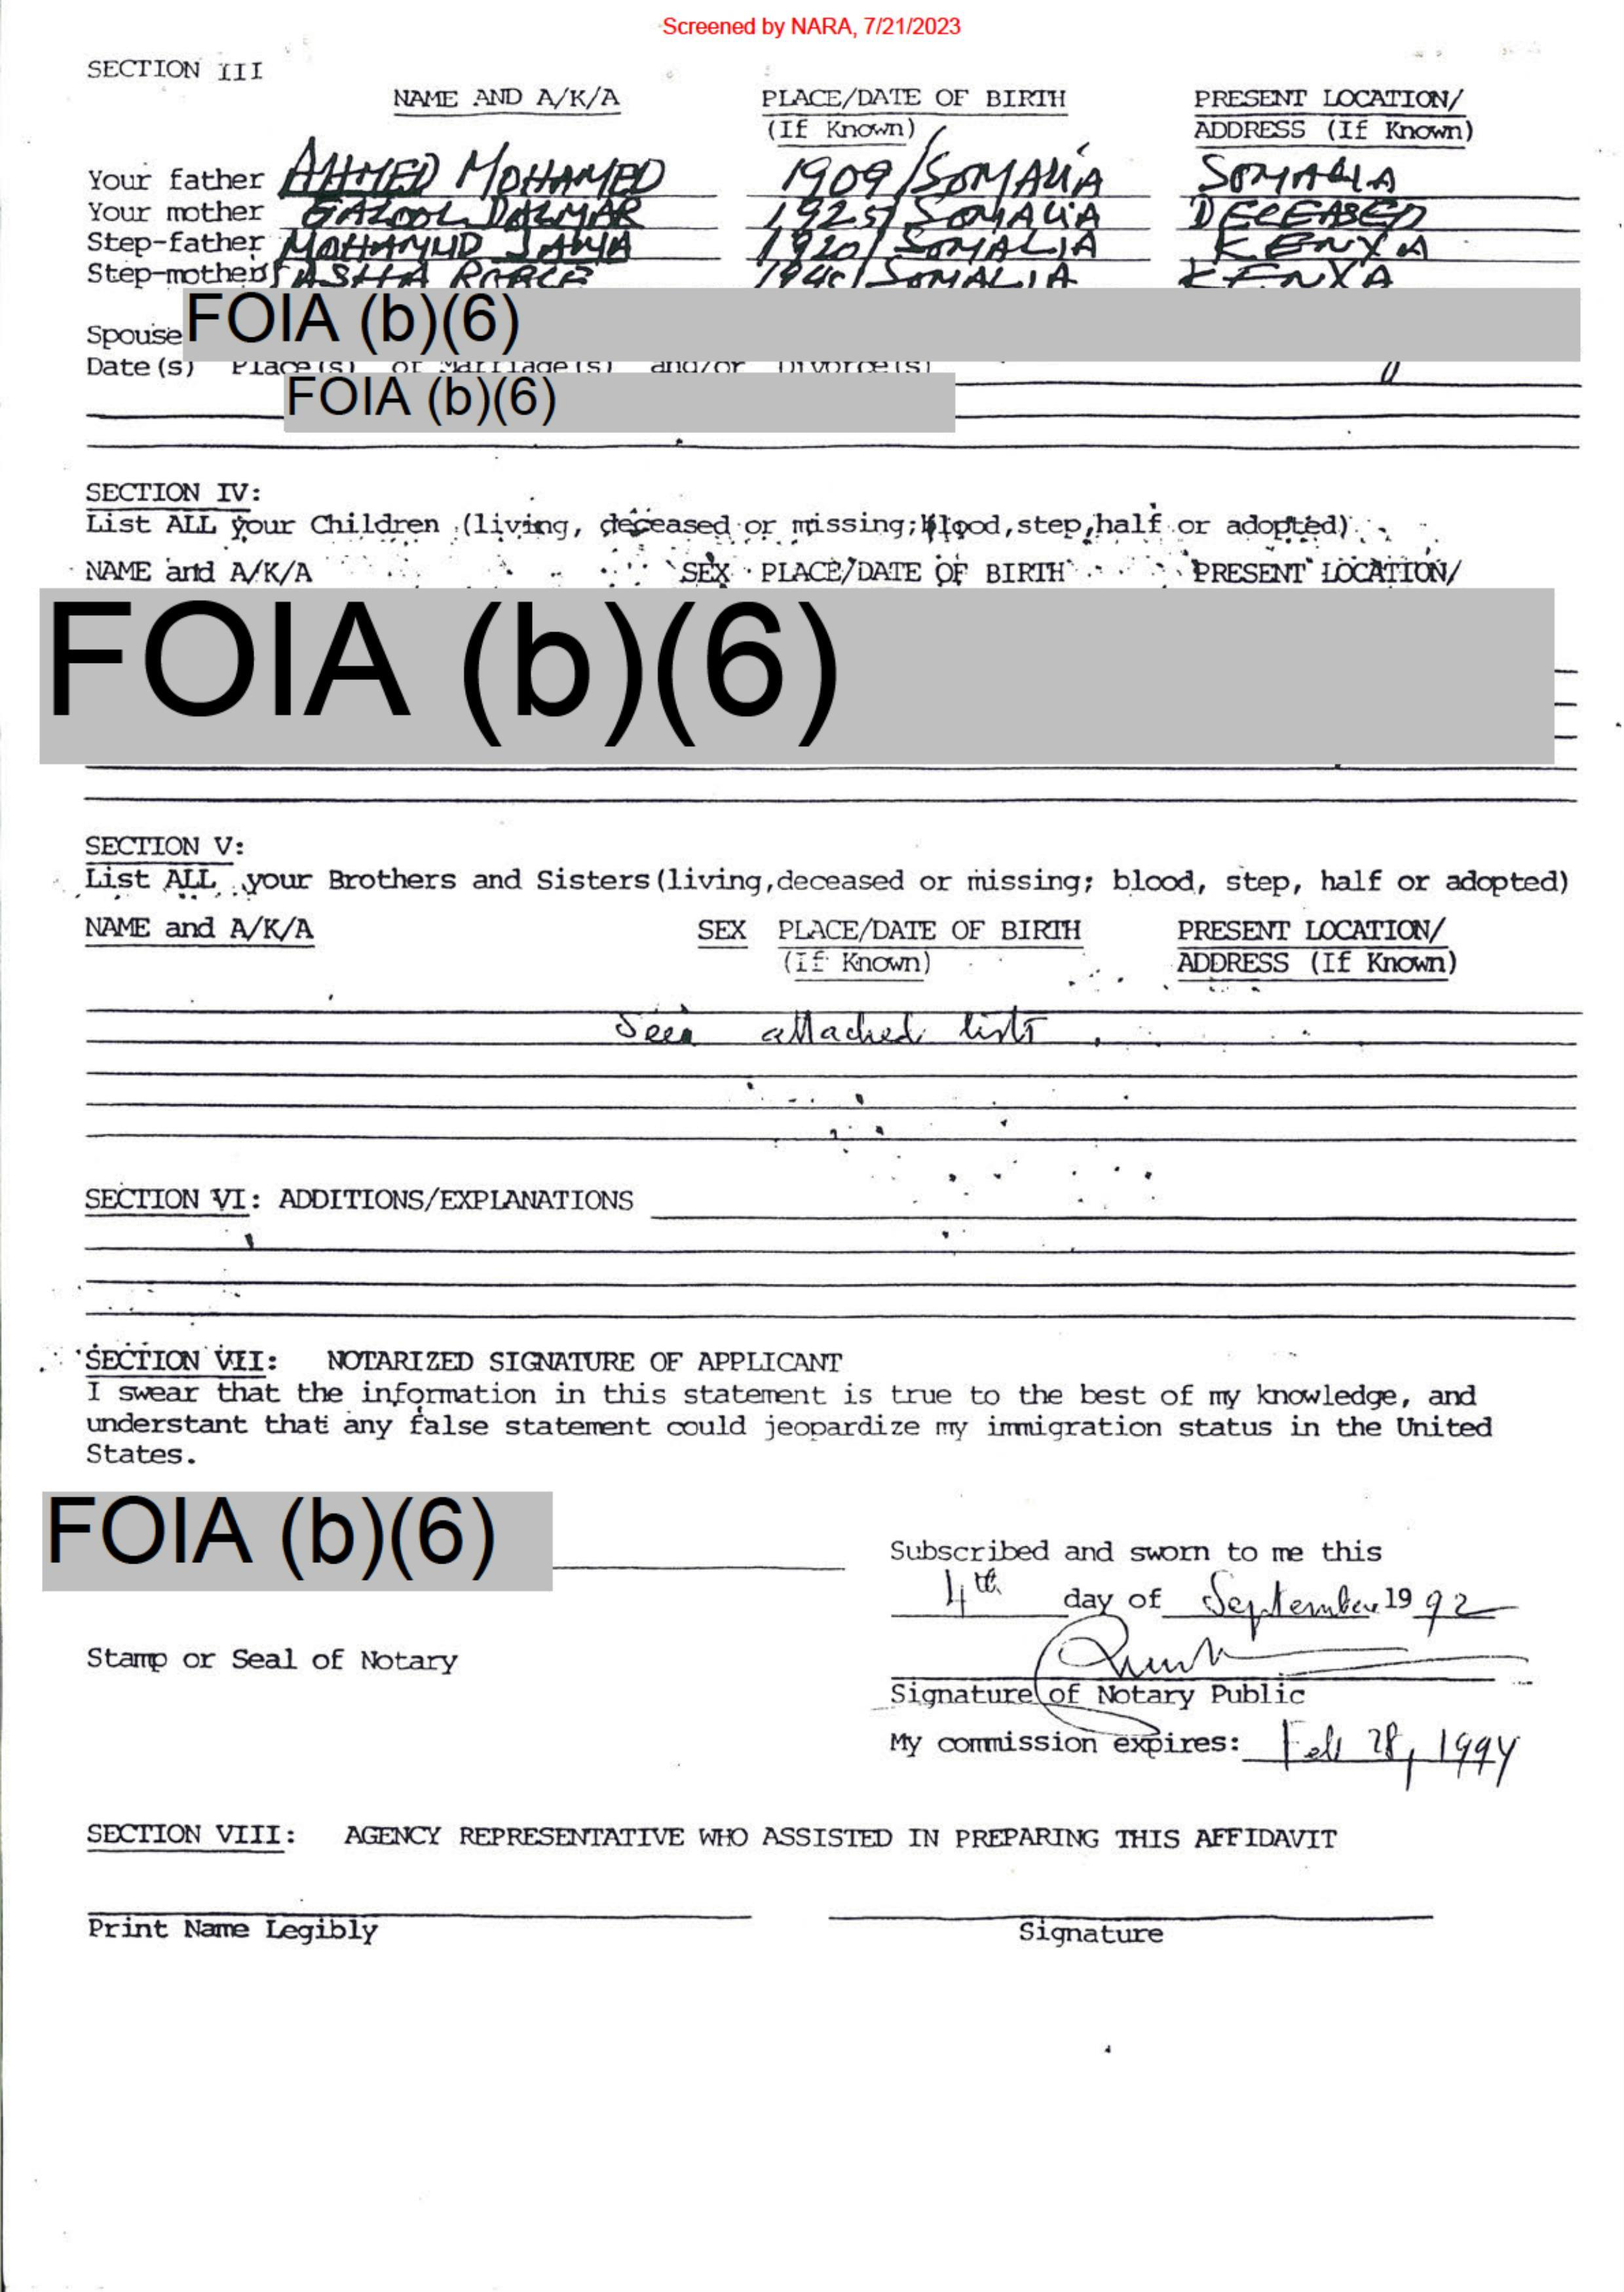 Screened by NARA, 7/21/2023
SECTION III
NAME AND A/K/A PLACE/DATE OF BIRTH PRESENT LOCATION/
(If Known) ADDRESS (If Known)
Your father AHMED MOHAMED 1909/SOMALIA SOMALIA
Your mother DALMAR 1925/SOMALIA DECEASED
Step-father MOHAMUD JAMA 1920/SOMALIA KENYA
Step-mother ASHA SOMALIA KENYA
Spouse FOIA (b)(6)
Date(s) Place(s) of Marriage(s) and/or Divorce(s)
FOIA (b)(6)
SECTION IV:
List ALL your Children (living, deceased or missing; blood, step, half or adopted)
NAME and A/K/A SEX PLACE/DATE OF BIRTH PRESENT LOCATION/
FOIA (b)(6)
SECTION V:
List ALL your Brothers and Sisters (living, deceased or missing; blood, step, half or adopted)
NAME and A/K/A SEX PLACE/DATE OF BIRTH PRESENT LOCATION/
(If Known) ADDRESS (If Known)
attached
SECTION VI: ADDITIONS/EXPLANATIONS
SECTION VII: NOTARIZED SIGNATURE OF APPLICANT
I swear that the information in this statement is true to the best of my knowledge, and
understant that any false statement could jeopardize my immigration status in the United
States.
FOIA (b)(6)
Subscribed and sworn to me this
4th day of September 19 92
Stamp or Seal of Notary
Signature of Notary Public
My commission expires: Feb 28, 1994
SECTION VIII: AGENCY REPRESENTATIVE WHO ASSISTED IN PREPARING THIS AFFIDAVIT
Print Name Legibly Signature